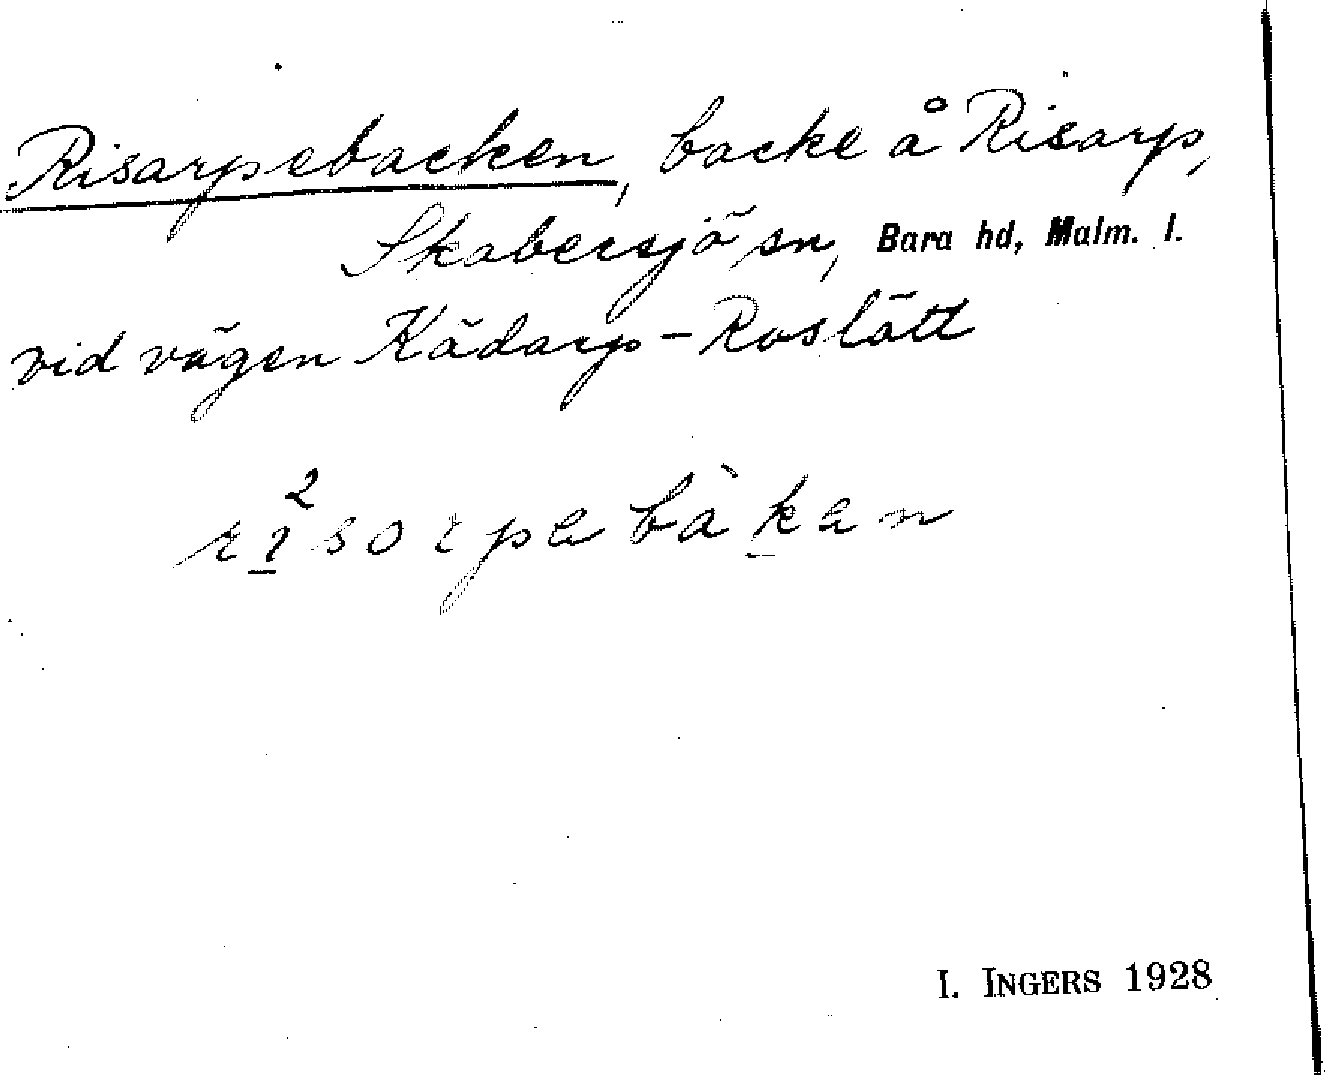 Risarpebacken, backe å Risarp,
Skabersjö sn, Bara hd, Malm. l.
vid vägen Kädarp - Roslätt
I. INGERS 1928